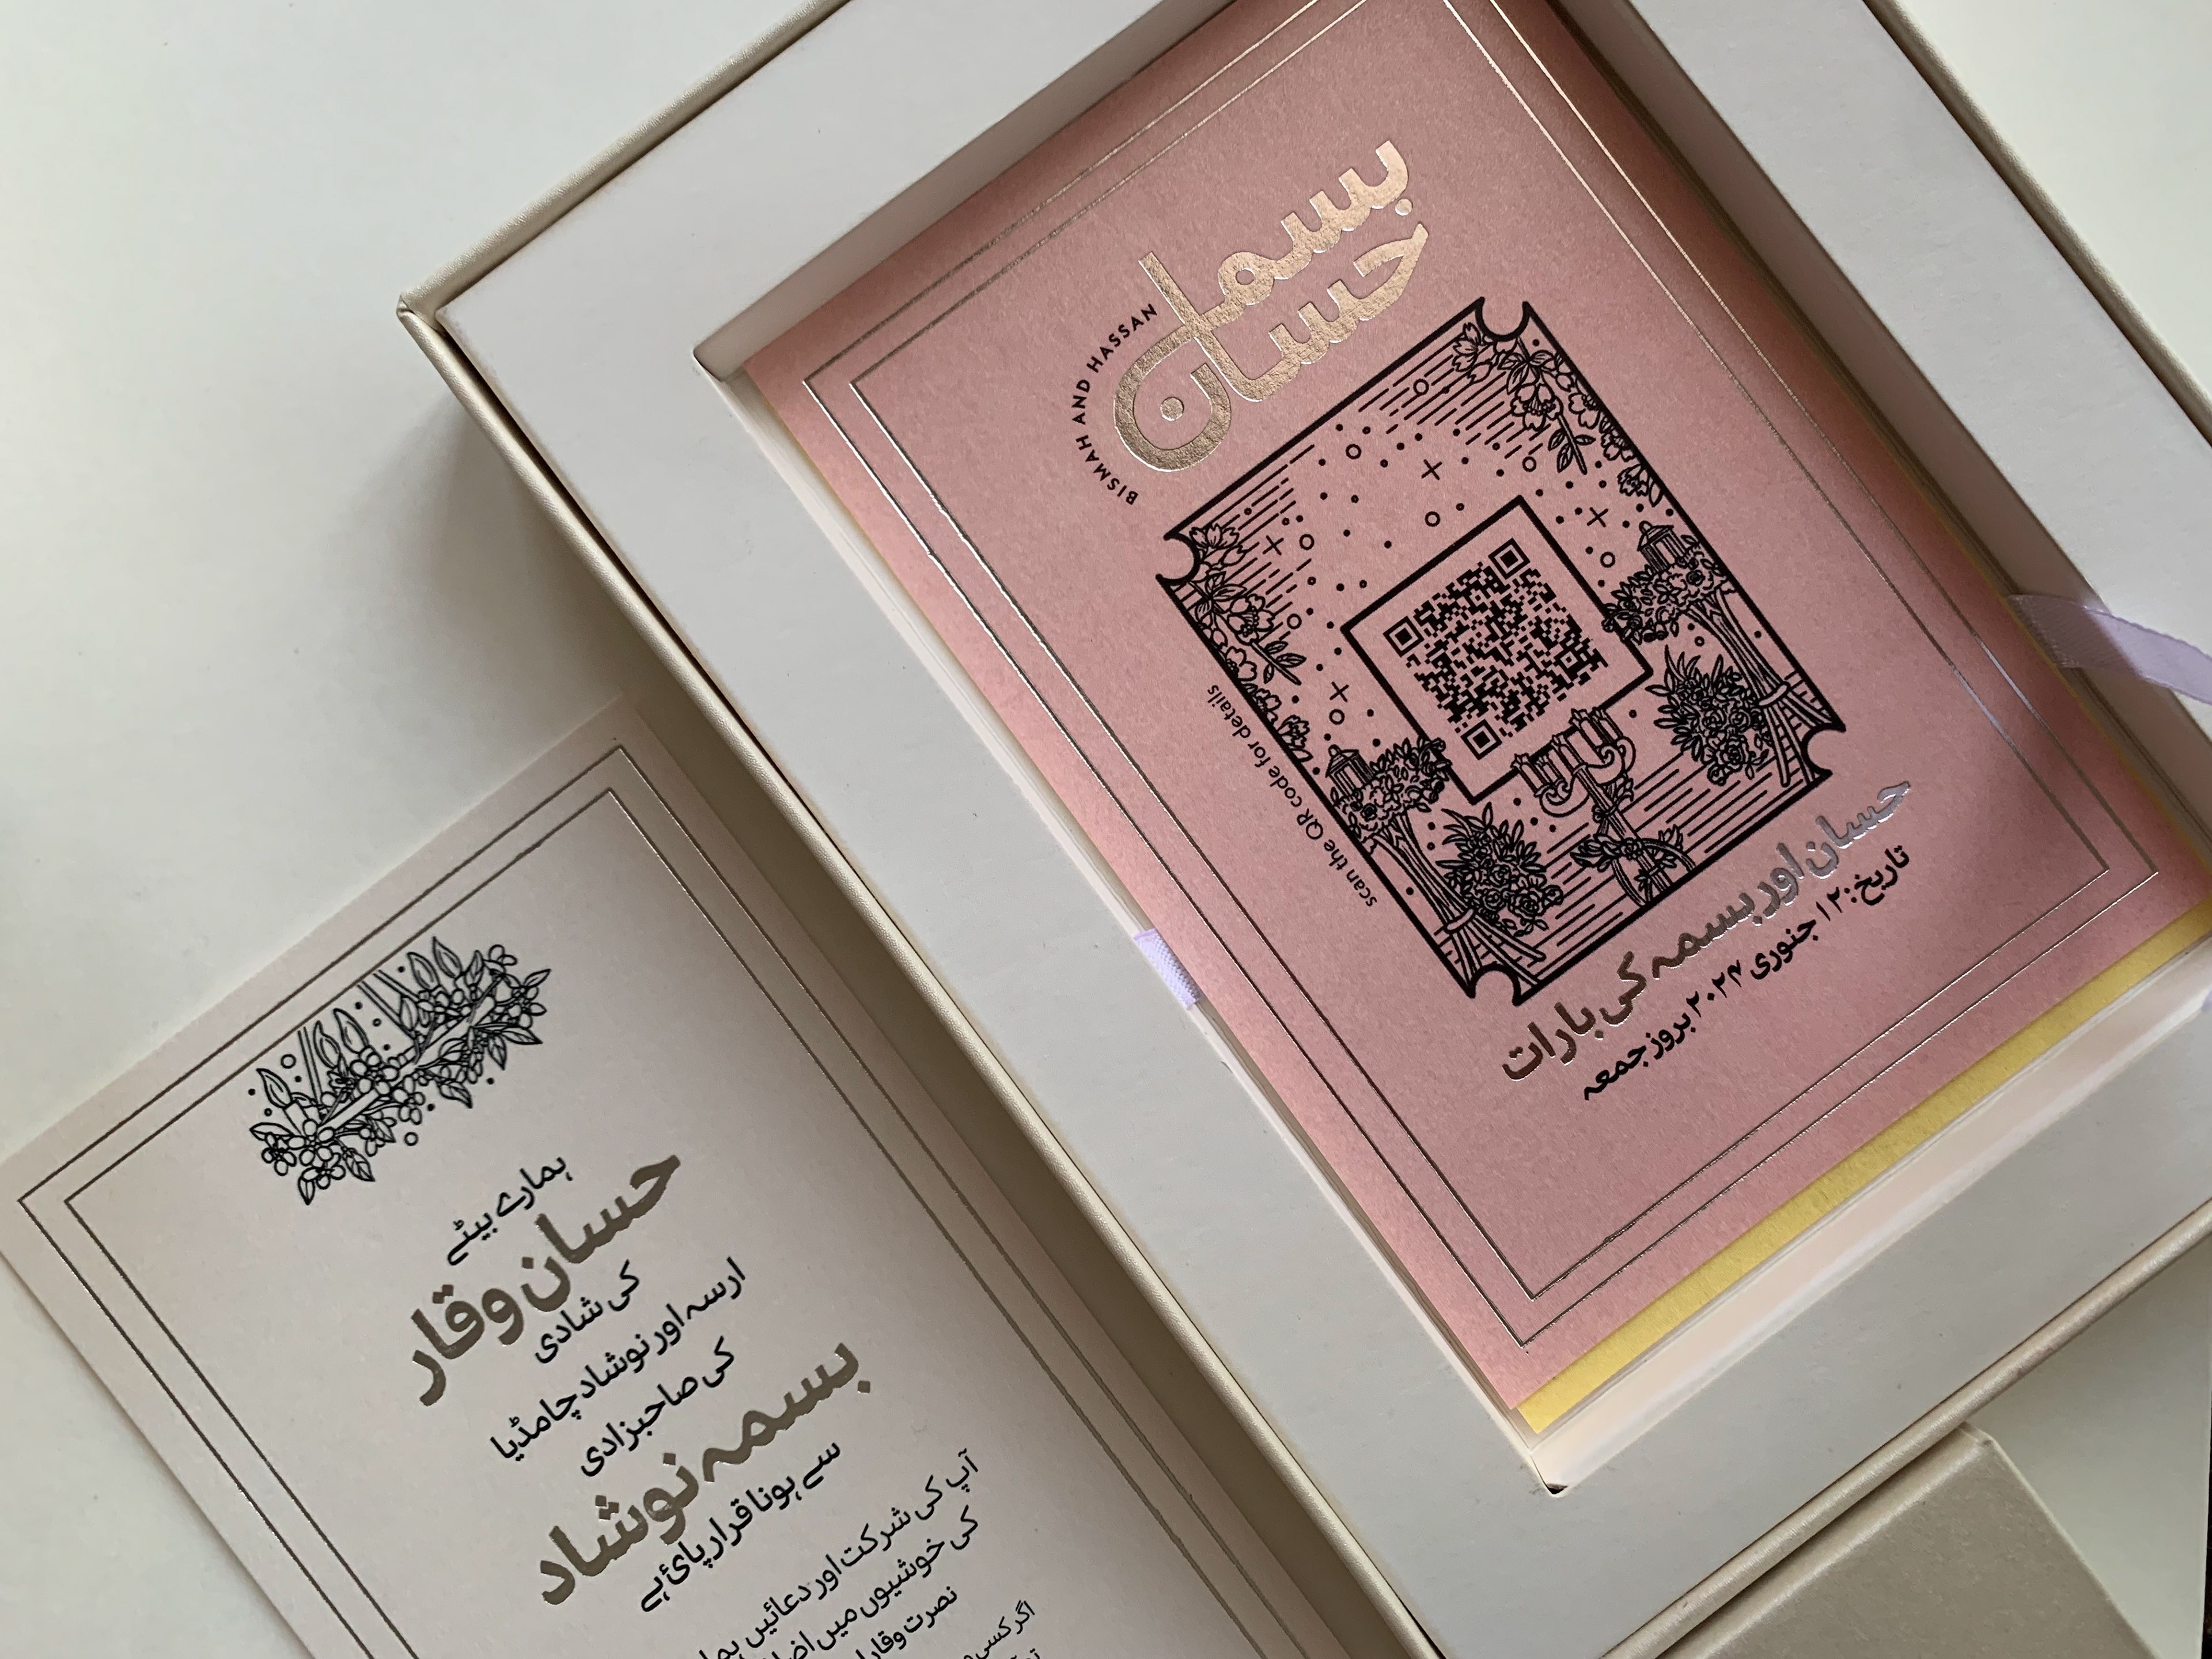 بسما
حسان
BISMAH AND HASSAN
scan the QR code for details
حسان اور بسمہ کی بارات
تاریخ: ۱۲ جنوری ۲۰۲۴ بروز جمعہ
ہمارے بیٹے
حسان وقار
کی شادی
ارسہ اور نوشاد چامڈیا
کی صاحبزادی
بسمہ نوشاد
سے ہونا قرار پائ ہے
آپ کی شرکت اور دعائیں
کی خوشیوں میں
نصرت وقار
اگر کسی